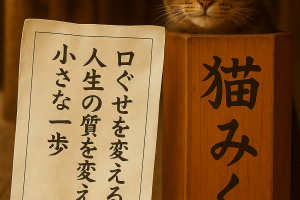 口ぐせを変える
人生の質を変え
小さな一歩
猫みく